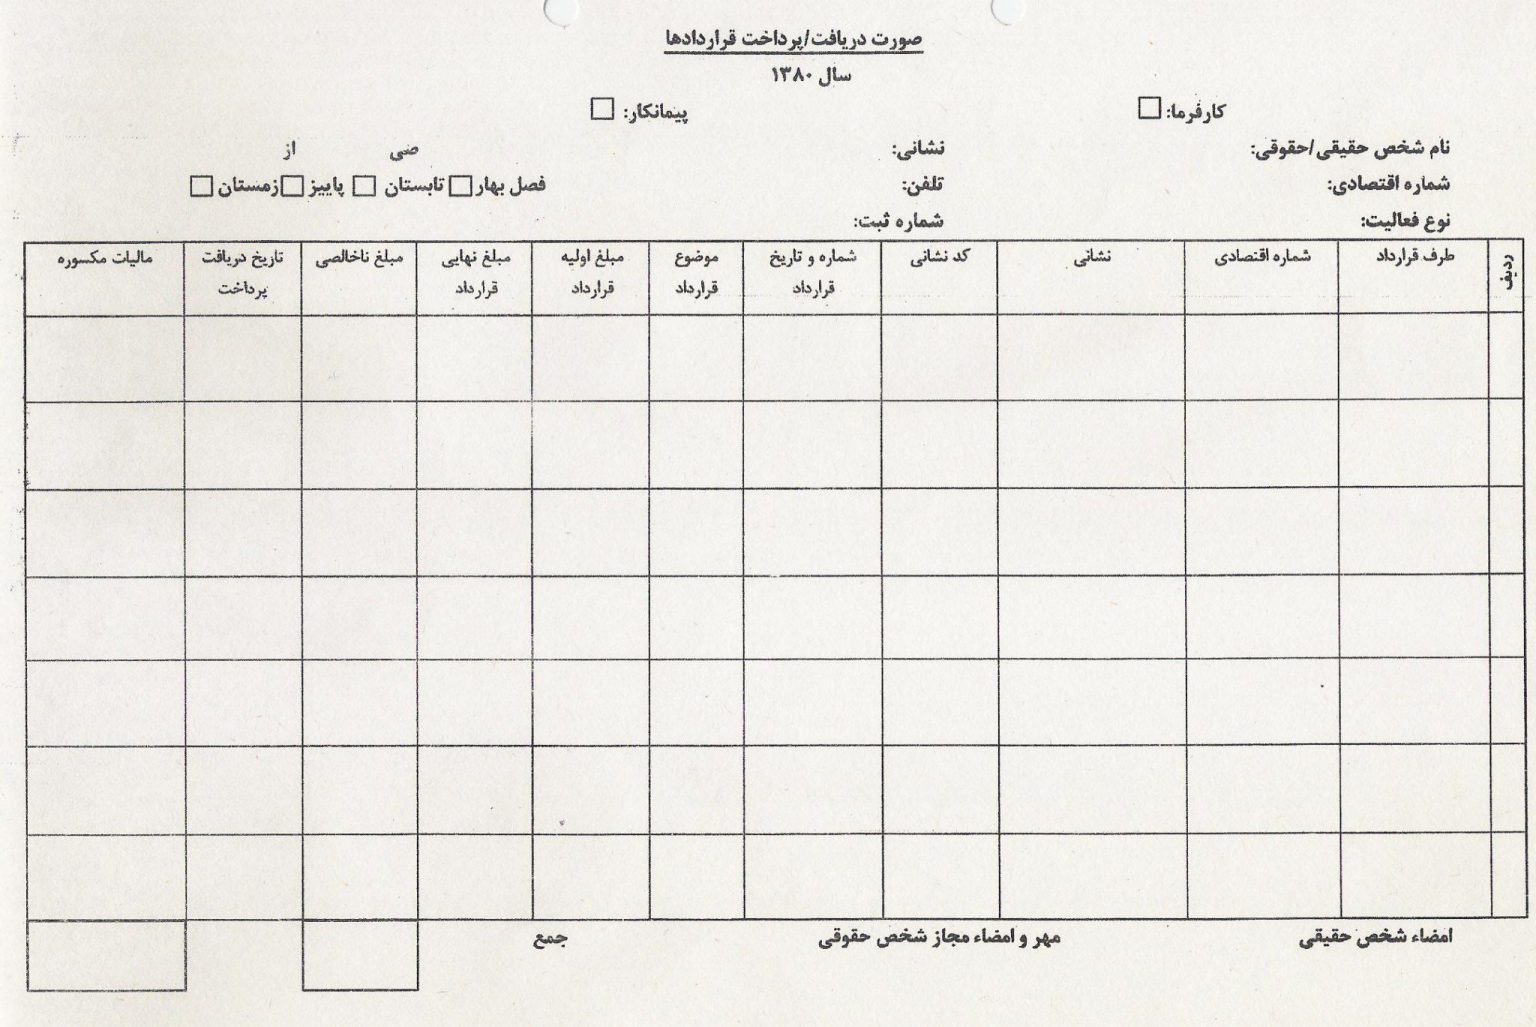 صورت دریافت/پرداخت قراردادها
سال ۱۳۸۰
کارفرما: پیمانکار:
نام شخص حقیقی/حقوقی: نشانی: صی از
شماره اقتصادی: تلفن: فصل بهار تابستان پاییز زمستان
نوع فعالیت: شماره ثبت:
ردیف
طرف قرارداد
شماره اقتصادی
نشانی
کد نشانی
شماره و تاریخ
قرارداد
موضوع
قرارداد
مبلغ اولیه
قرارداد
مبلغ نهایی
قرارداد
مبلغ ناخالصی
تاریخ دریافت
پرداخت
مالیات مکسوره
امضاء شخص حقیقی مهر و امضاء مجاز شخص حقوقی جمع